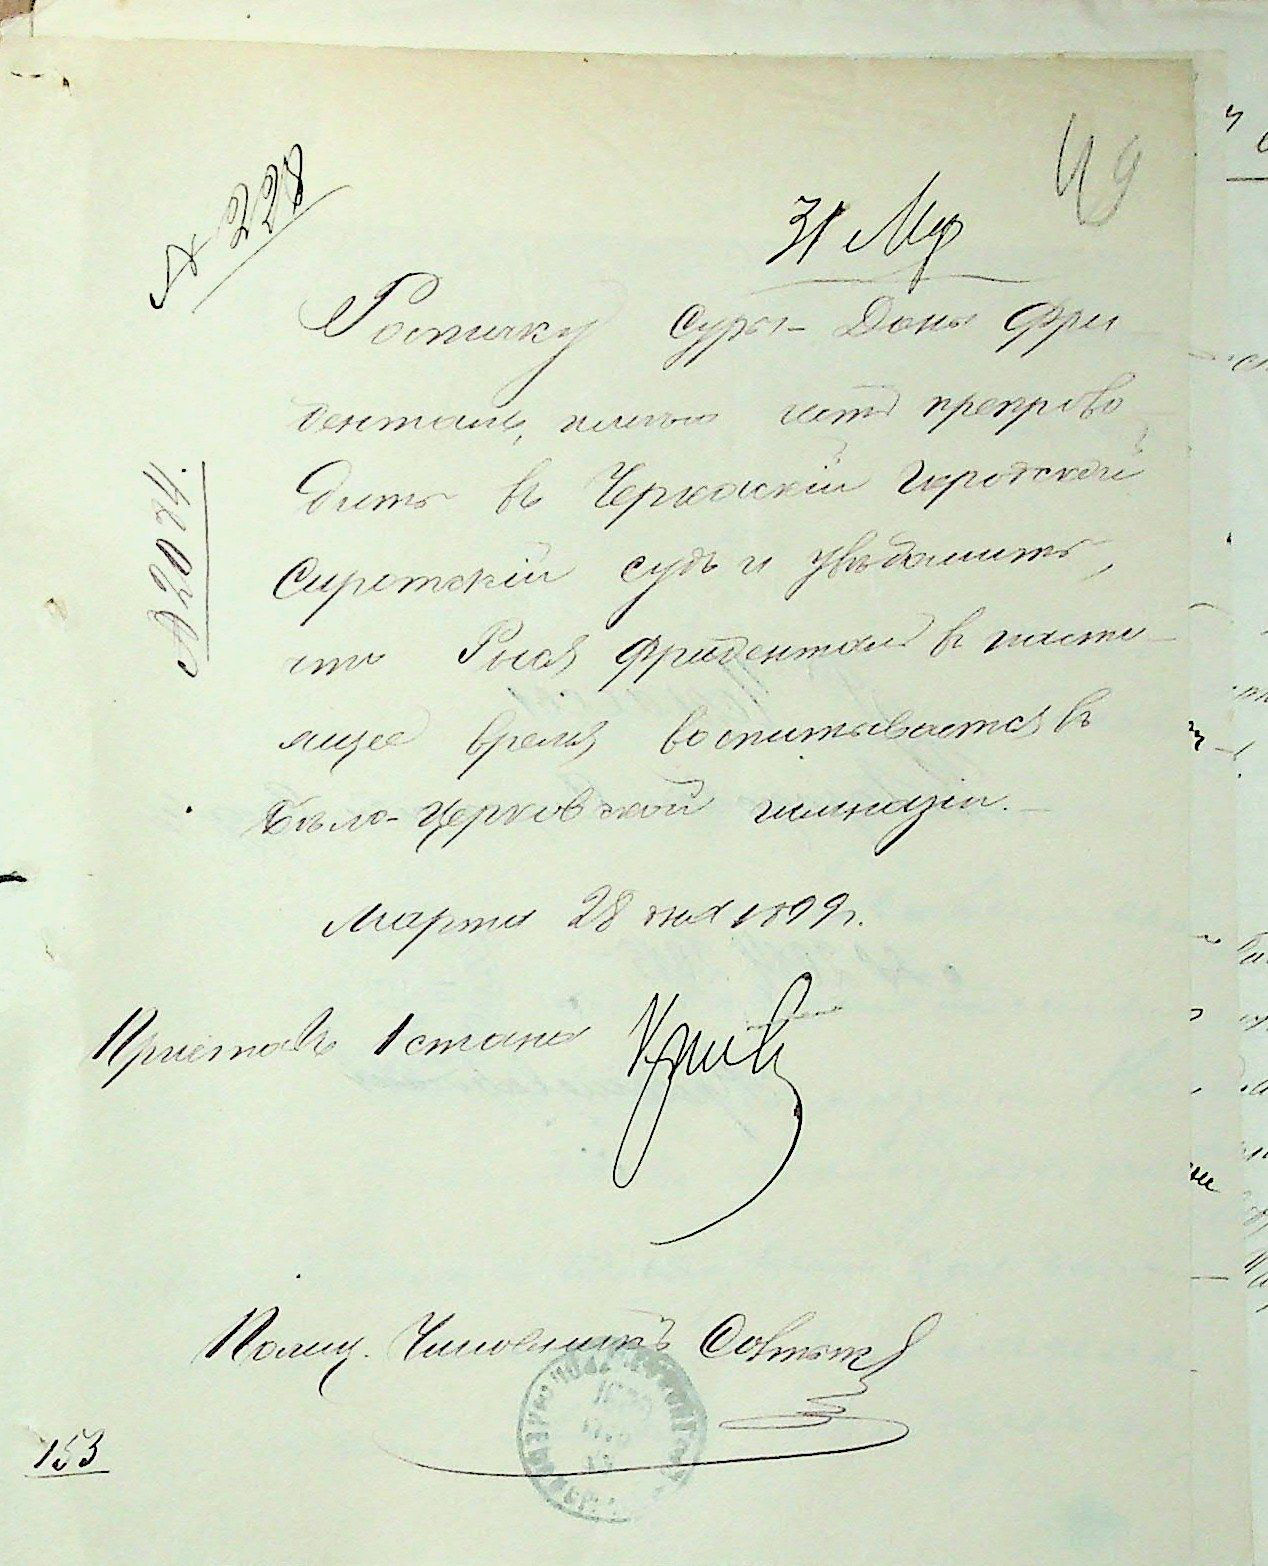 49
№ 228
31 Мр
Росписку Суры-Доны Фри
денталь, имѣю честь препрово
дить въ Черкаскій Городской
Сиротскій судъ и увѣдомить,
что Фриденталь въ насто
ящее время воспитывается въ
Бѣло-Церковской гимназіи.
№ 2074.
Марта 28 дня 1899 г.
Приставъ 1 стана
Полиц. Чиновникъ
153